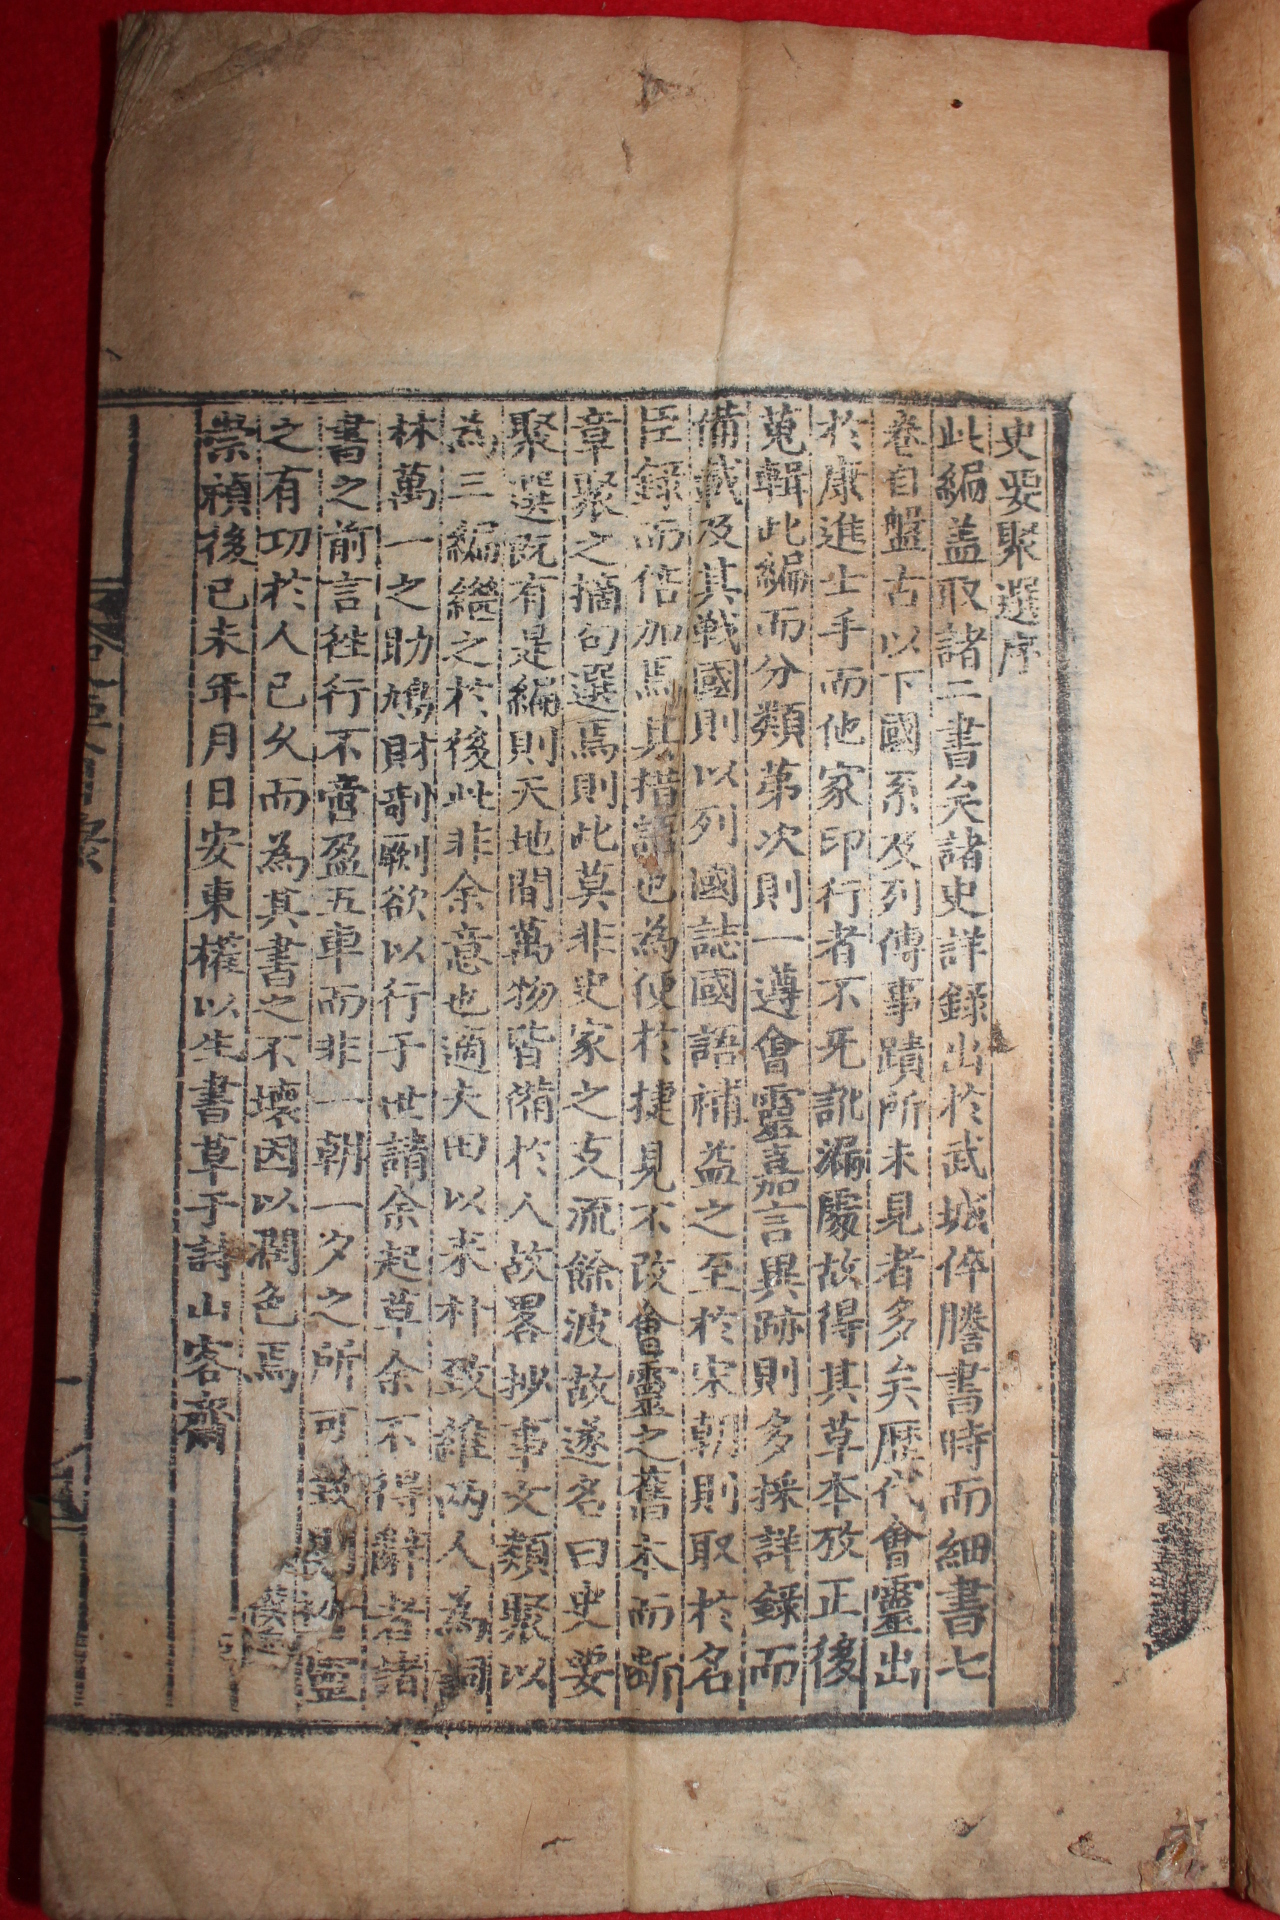 史要聚選序
此編盖取諸二書矣諸史詳錄出於武城倅謄書時而細書七
卷自盤古以下國系及列傳事蹟所未見者多矣歷代會靈出
於康進士手而他家印行者不死訛漏處故得其草本攷正後
蒐輯此編而分類第次則一遵會靈嘉言異跡則多採詳錄而
備載及其戰國則以列國誌國語補益之至於宋朝則取於名
臣錄而倍加焉其措語也為便於捷見不改會靈之舊本而斷
章聚之摘句選焉則此莫非史家之支流餘波故遂名曰史要
聚選既有是編則天地間萬物皆備於人故畧抄事文類聚以
為三編繼之於後此非余意也適大田以來朴致維兩人為詞
林萬一之助鳩財剞劂欲以行于世請余起草余不得辭者諸
書之前言徃行不啻盈五車而非一朝一夕之所可致則會靈
之有功於人已久而為其書之不壞因以潤色焉
崇禎後己未年月日安東權以生書草于詩山客齋